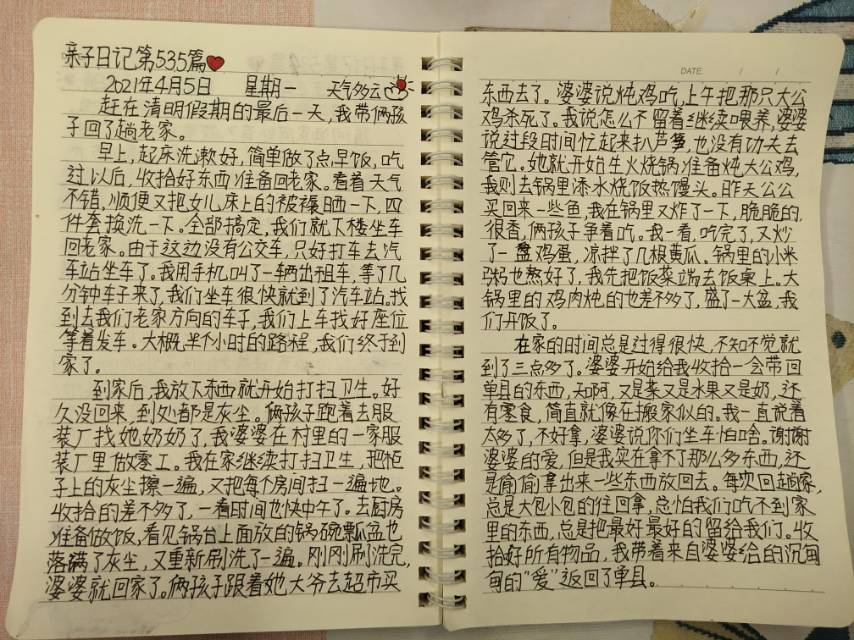 亲子日记第535篇
2021年4月5日 星期一 天气多云
赶在清明假期的最后一天,我带俩孩
子回了趟老家。
早上,起床洗漱好,简单做了点早饭,吃
过以后,收拾好东西准备回老家。看着天气
不错,顺便又把女儿床上的被褥晒一下,四
件套换洗一下。全部搞定,我们就下楼坐车
回老家。由于这边没有公交车,只好打车去汽
车站坐车了。我用手机叫了一辆出租车,等了几
分钟车子来了,我们坐车很快就到了汽车站。找
到去我们老家方向的车子,我们上车找好座位
等着发车。大概半个小时的路程,我们终于到
家了。
到家后,我放下东西就开始打扫卫生。好
久没回来,到处都是灰尘。俩孩子跑着去服
装厂找她奶奶了,我婆婆在村里的一家服
装厂里做零工。我在家继续打扫卫生,把柜
子上的灰尘擦一遍,又把每个房间扫一遍地。
收拾的差不多了,一看时间也快中午了。去厨房
准备做饭,看见锅台上面放的锅碗瓢盆也
落满了灰尘,又重新刷洗了一遍。刚刚刷洗完,
婆婆就回家了。俩孩子跟着她大爷去超市买
DATE / /
东西去了。婆婆说炖鸡吃,上午把那只大公
鸡杀死了。我说怎么不留着继续喂养,婆婆
说过段时间忙起来扒芦笋,也没有功夫去
管它。她就开始生火烧锅准备炖大公鸡,
我则去锅里添水烧饭热馒头。昨天公公
买回来一些鱼,我在锅里又炸了一下,脆脆的,
很香,俩孩子争着吃。我一看,吃完了,又炒
了一盘鸡蛋,凉拌了几根黄瓜、锅里的小米
粥也熬好了,我先把饭菜端去饭桌上。大
锅里的鸡肉炖的也差不多了,盛了一大盆,我
们开饭了。
在家的时间总是过得很快,不知不觉就
到了三点多了。婆婆开始给我收拾一会带回
单县的东西,天啊,又是菜又是水果又是奶,还
有零食,简直就像在搬家似的。我一直说着
太多了,不好拿,婆婆说你们坐车怕啥。谢谢
婆婆的爱,但是我实在拿不了那么多东西,还
是偷偷拿出来一些东西放回去。每次回趟家,
总是大包小包的往回拿,总怕我们吃不到家
里的东西,总是把最好最好的留给我们。收
拾好所有物品,我带着来自婆婆给的沉甸
甸的“爱”返回了单县。